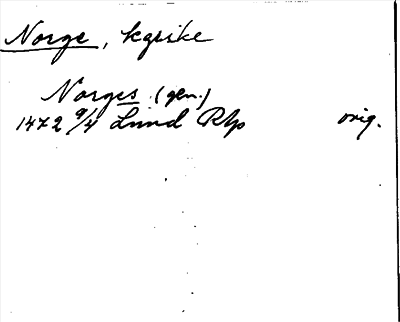 Norge, kgrike
Norges (gen.)
1472 9/4 Lund Rtp orig.